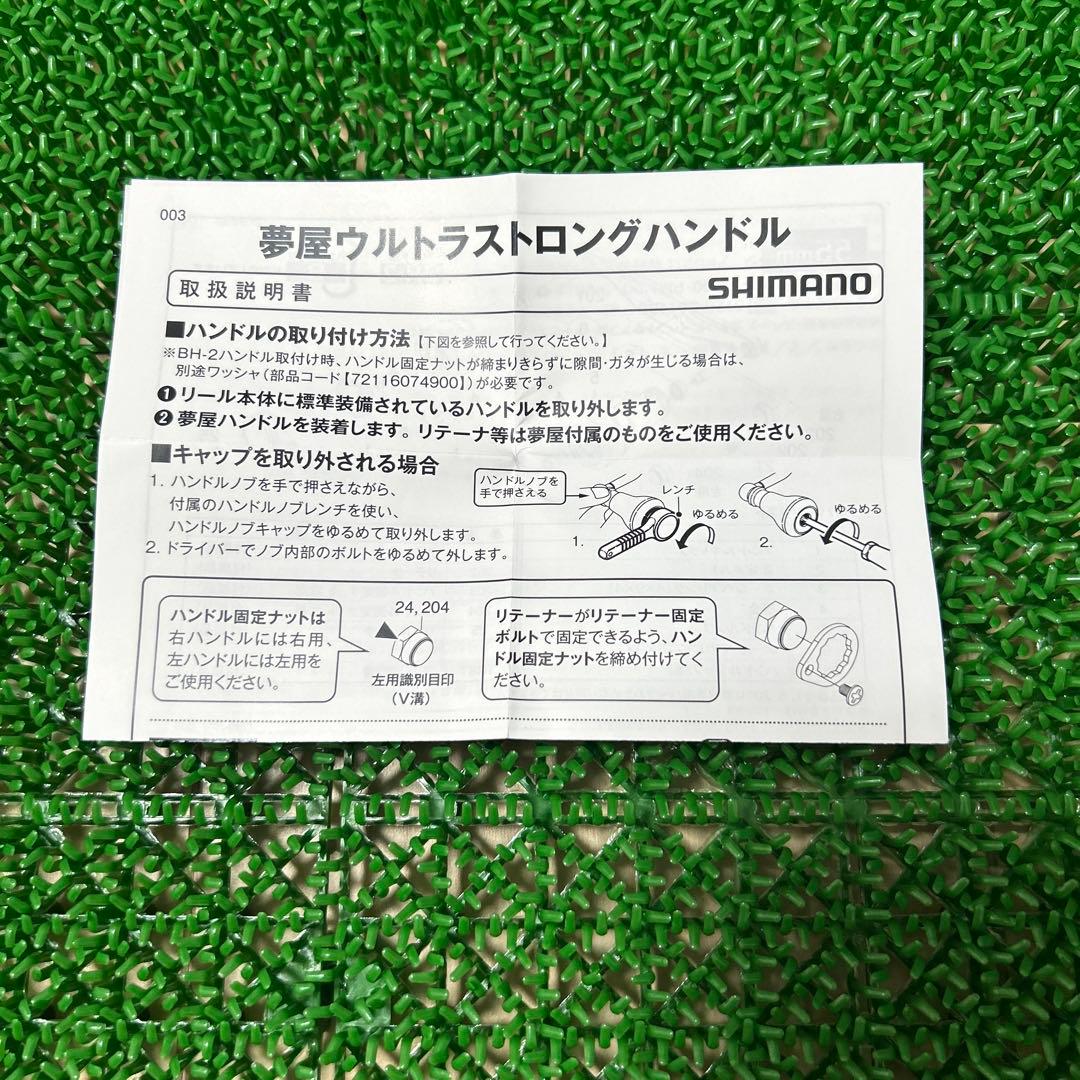 003
夢屋ウルトラストロングハンドル
取扱説明書
SHIMANO
■ハンドルの取り付け方法【下図を参照して行ってください。】
※BH-2ハンドル取付け時、ハンドル固定ナットが締まりきらずに隙間・ガタが生じる場合は、
別途ワッシャ（部品コード【72116074900】）が必要です。
❶リール本体に標準装備されているハンドルを取り外します。
❷夢屋ハンドルを装着します。リテーナ等は夢屋付属のものをご使用ください。
■キャップを取り外される場合
1. ハンドルノブを手で押さえながら、
付属のハンドルノブレンチを使い、
ハンドルノブキャップをゆるめて取り外します。
2. ドライバーでノブ内部のボルトをゆるめて外します。
ハンドルノブを
手で押さえる
レンチ
ゆるめる
1.
ゆるめる
2.
ハンドル固定ナットは
右ハンドルには右用、
左ハンドルには左用を
ご使用ください。
24,204
左用識別目印
（V溝）
リテーナーがリテーナー固定
ボルトで固定できるよう、ハン
ドル固定ナットを締め付けてく
ださい。